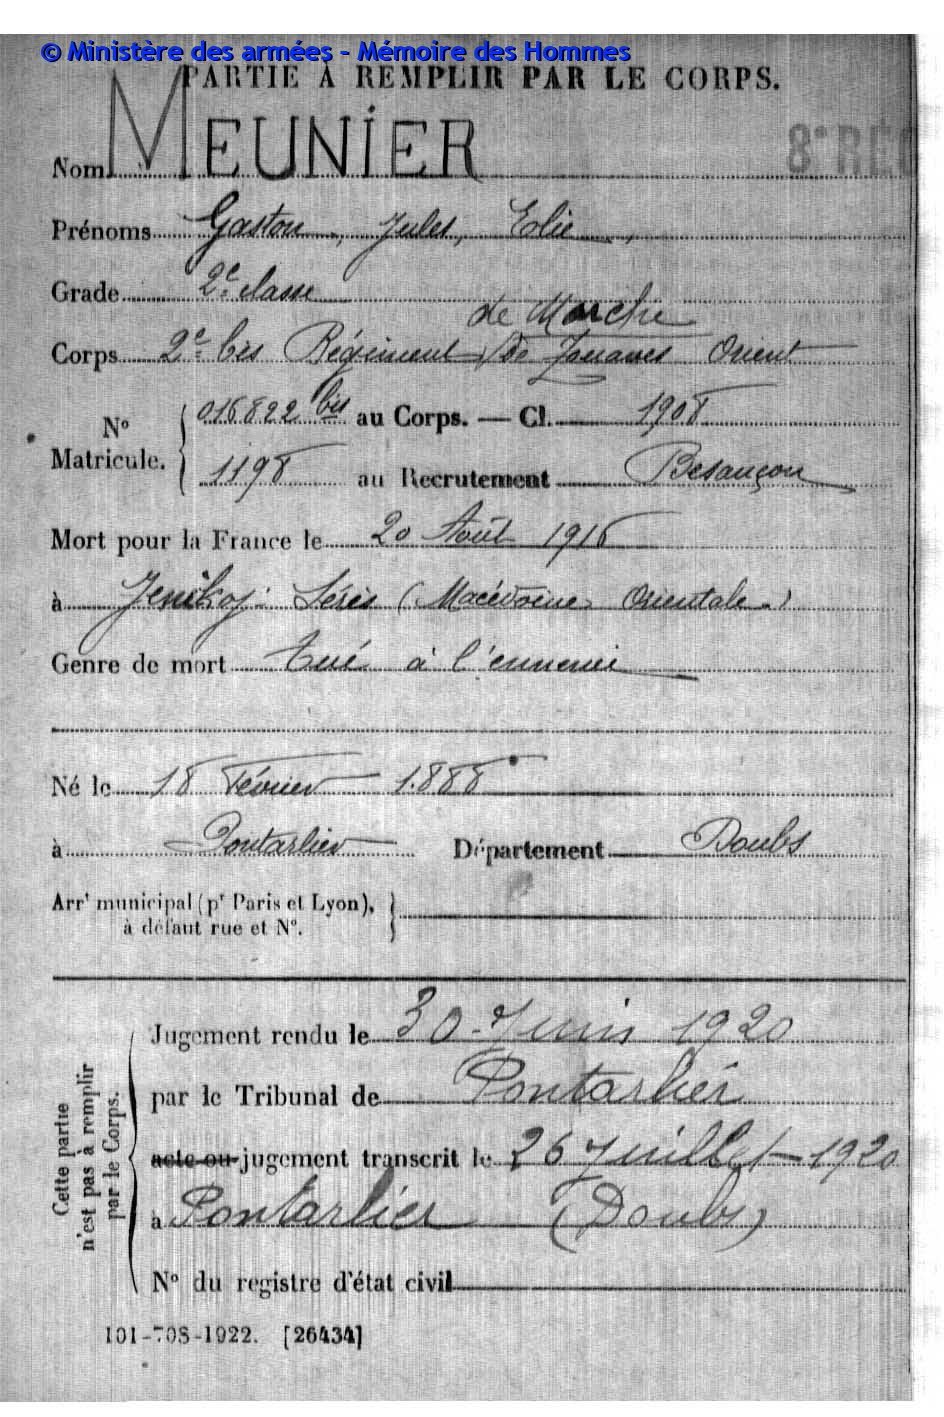 © Ministère des armées - Mémoire des Hommes
PARTIE À REMPLIR PAR LE CORPS.
Nom MEUNIER
8e RÉG
Prénoms Gaston, Jules, Elie,
Grade 2e classe
de Marche
Corps 2e bis Régiment de Zouaves Orient
No Matricule. 016822 bis au Corps. — Cl. 1908
1198 au Recrutement Besançon
Mort pour la France le 20 Août 1916
à Jenikoj. Sérès (Macédoine Orientale.)
Genre de mort Tué à l'ennemi
Né le 18 Février 1888
à Pontarlier Département Doubs
Arrt municipal (pr Paris et Lyon),
à défaut rue et No.
Cette partie
n'est pas à remplir
par le Corps.
Jugement rendu le 30 Juin 1920
par le Tribunal de Pontarlier
acte ou jugement transcrit le 26 Juillet 1920
à Pontarlier (Doubs)
No du registre d'état civil
101-708-1922. [26434]